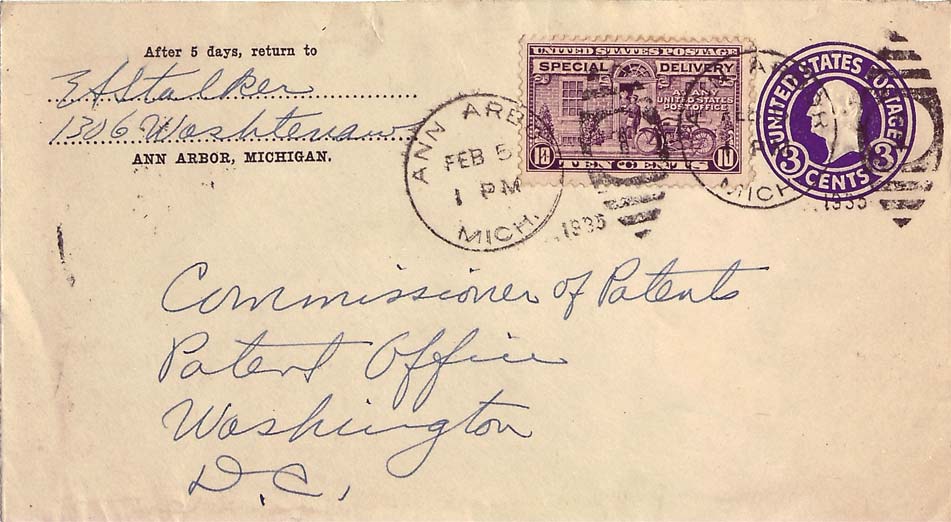 After 5 days, return to
EAStalker
1306 Washtenaw
ANN ARBOR, MICHIGAN.
UNITED STATES POSTAGE
SPECIAL DELIVERY
AT ANY
UNITED STATES
POST OFFICE
10 TEN CENTS 10
UNITED STATES POSTAGE
3 CENTS 3
ANN ARB
FEB 5
1 PM
MICH.
1935
MICH
1935
Commissioner of Patents
Patent Office
Washington
D.C.